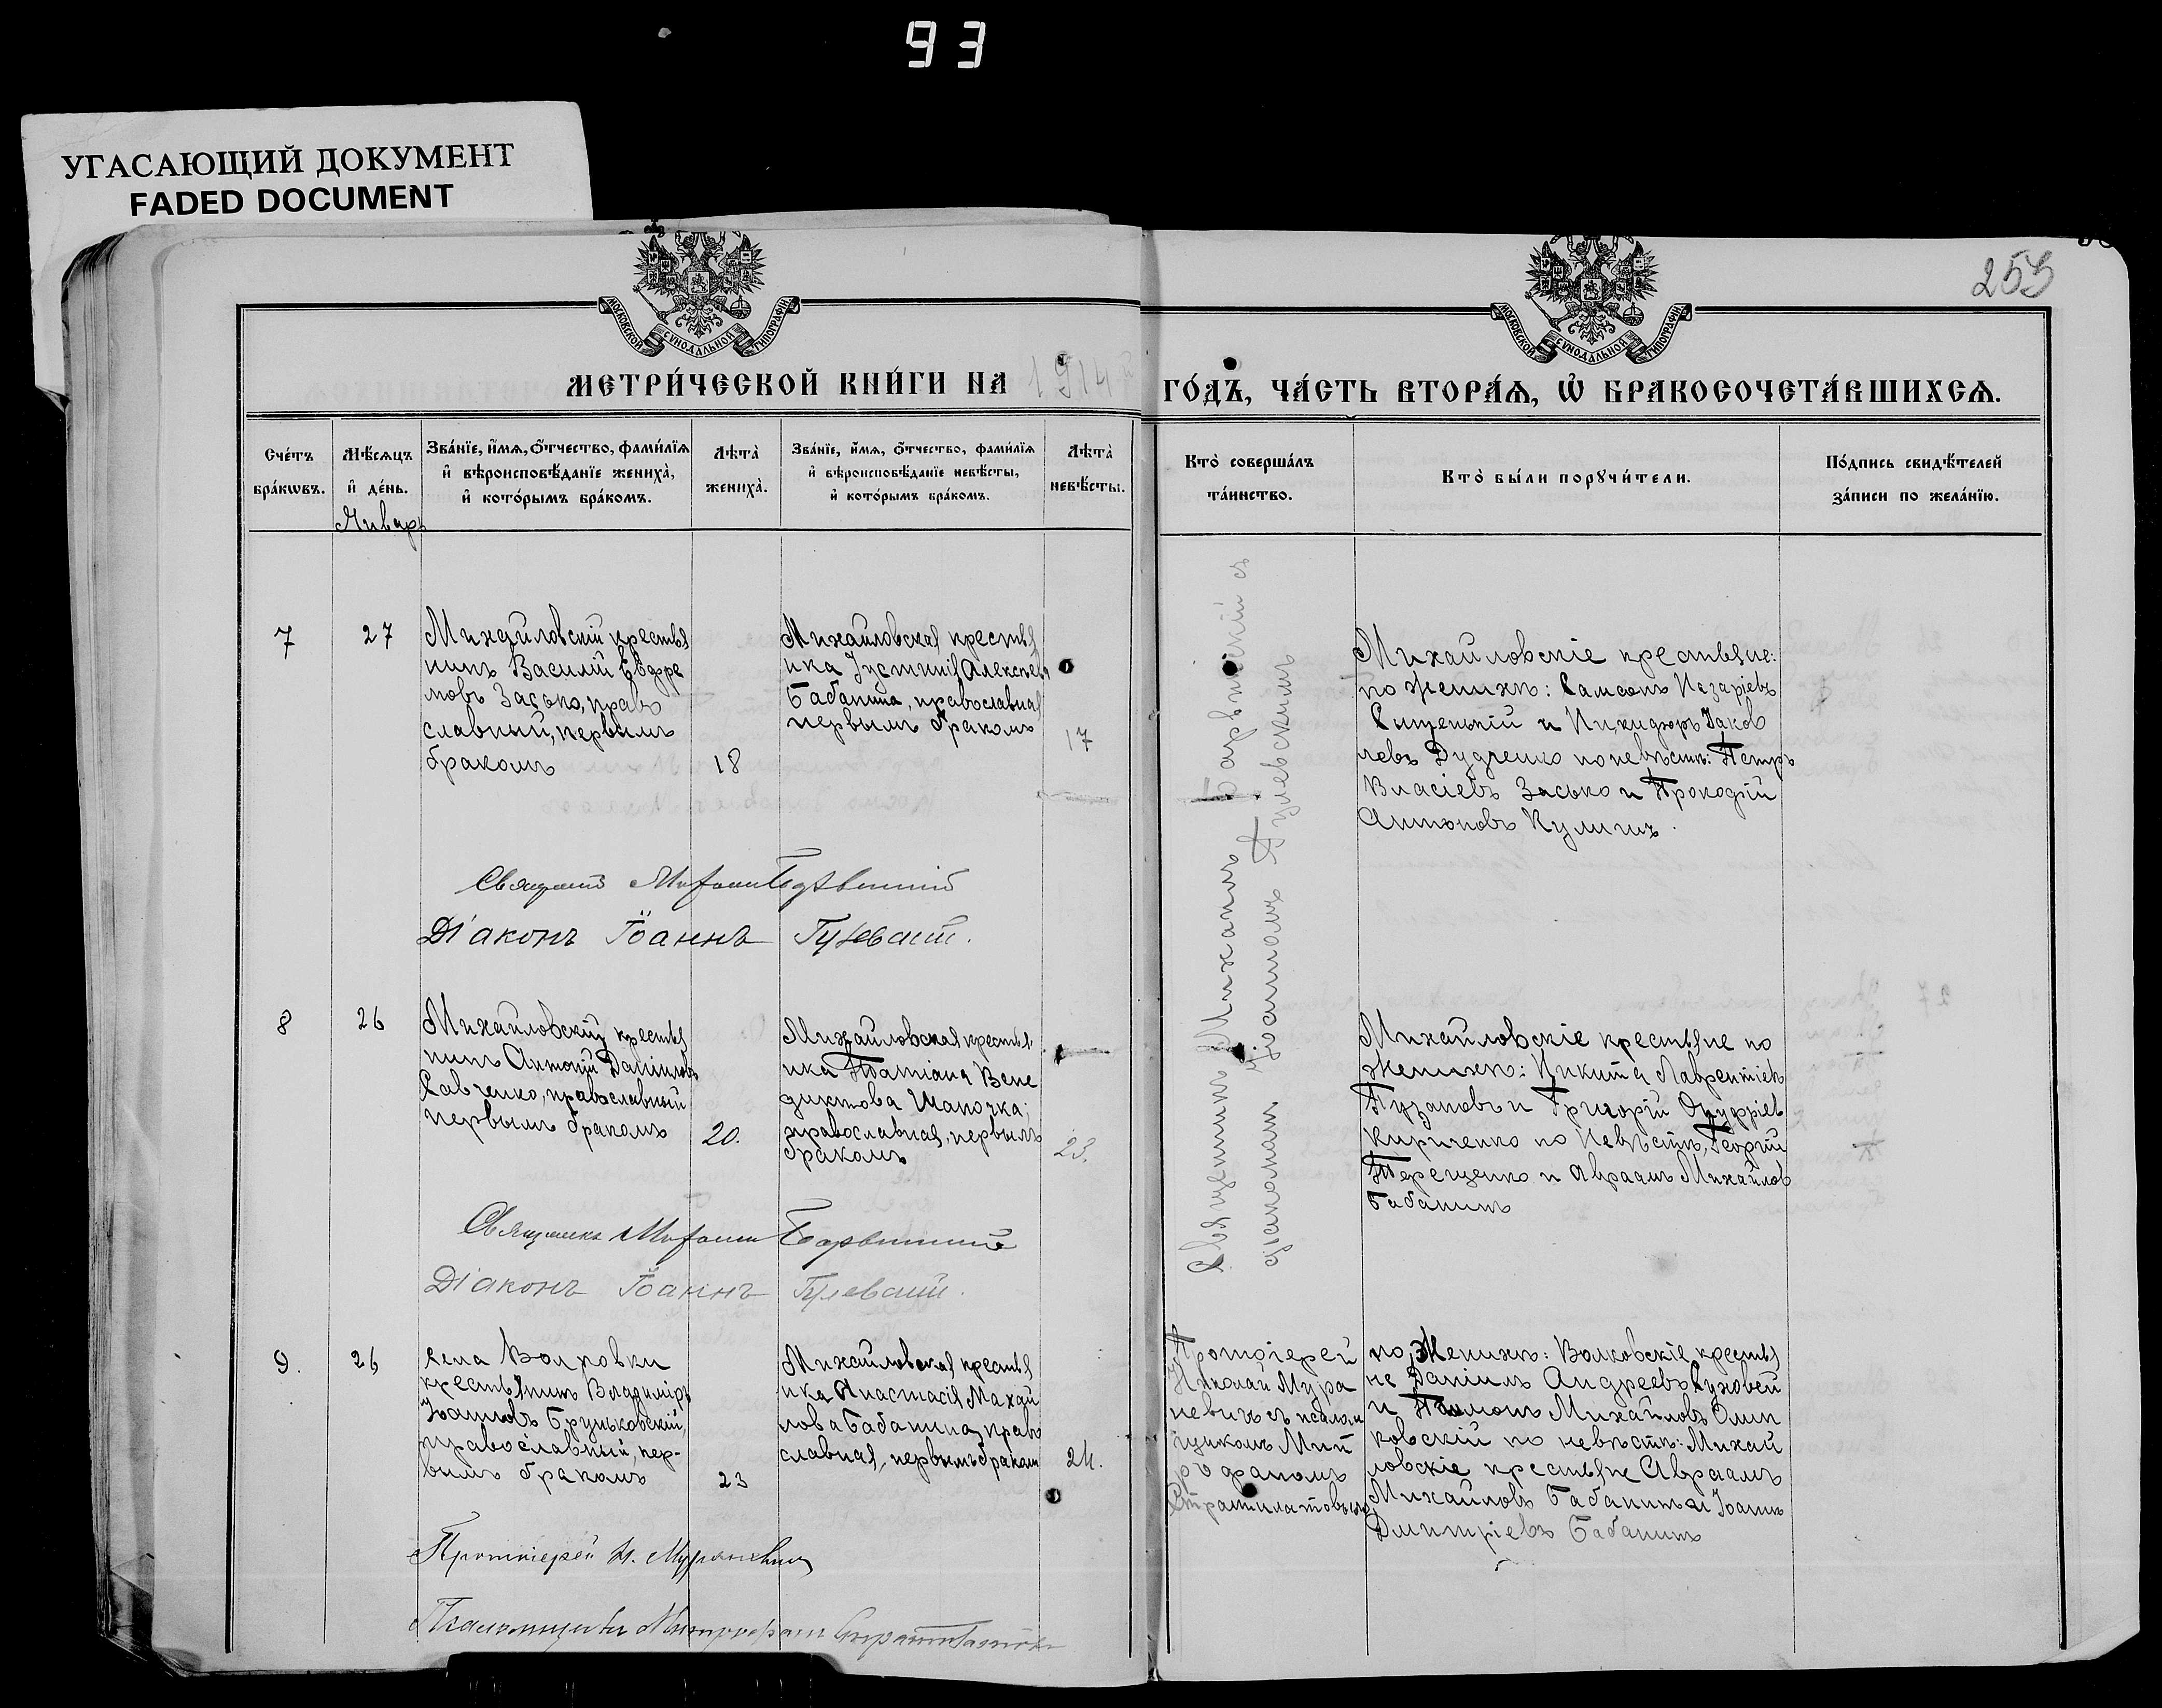 93
УГАСАЮЩИЙ ДОКУМЕНТ
FADED DOCUMENT
255
МОСКОВСКОЙ СѴНОДАЛЬНОЙ ТИПОГРАФІИ
МОСКОВСКОЙ СѴНОДАЛЬНОЙ ТИПОГРАФІИ
МЕТРИ́ЧЕСКОЙ КНИ́ГИ НА 1914 ГО́ДЪ, ЧА́СТЬ ВТОРА́Ѧ, Ѡ҆ БРАКОСОЧЕТА́ВШИХСѦ.
Сче́тъ бра́кѡвъ.
Мѣ́сяцъ и҆ де́нь.
Январь
Зва́нїе, и҆́мя, ѻ҆́тчество, фами́лїя
и҆ вѣроисповѣ́данїе жениха̀,
и҆ кото́рымъ бра́комъ.
Лѣта̀ жениха̀.
Зва́нїе, и҆́мя, ѻ҆́тчество, фами́лїя
и҆ вѣроисповѣ́данїе невѣ́сты,
и҆ кото́рымъ бра́комъ.
Лѣта̀ невѣ́сты.
Кто̀ соверша́лъ та́инство.
Кто̀ бы́ли порꙋчи́тели.
По́дпись свидѣ́телей за́писи по жела́нїю.
7
27
Михайловскій крестья
нинъ Василій Евфре
мовъ Засько, право
славный, первымъ
бракомъ
18
Михайловская крестья
нка Іустинія Алексѣева
Бабанина, православная
первымъ бракомъ
17
Священникъ Михаилъ Барвинскій съ
діакономъ Іоанномъ Гулевскимъ
Михайловскіе крестьяне:
по женихѣ: Самсонъ Назаріевъ
Сытенькій и Никифоръ Яков
левъ Дудченко по невѣстѣ: Петръ
Власіевъ Засько и Прокофій
Антоновъ Кулишъ.
Діаконъ Іоаннъ
8
26
Михайловскій крестья
нинъ Антоній Даніиловъ
Савченко, православный
первымъ бракомъ
20.
Михайловская крестья
нка Татіана Вене
диктова Шапочка;
православная, первымъ
бракомъ
23.
Михайловскіе крестьяне по
женихѣ: Никита Лаврентіевъ
Пузановъ и Григорій Онуфріев
Кириченко по невѣстѣ, Георгій
Терещенко и Авраамъ Михайлов
Бабанинъ
Діаконъ Іоаннъ
9.
26
села
крестьянинъ Владиміръ
Іоанновъ Бруньковскій,
православный, пер-
вымъ бракомъ
23
Михайловская крестья
нка Анастасія Михай
лова Бабанина, право
славная, первымъ бракомъ
24.
Протоіерей
Николай Мура
невичъ съ псалом
щикомъ Мит
рофаномъ
Стратилатовымъ
по женихѣ: Волковскіе крестья
не Даніилъ Андреевъ
и Михайловъ Олип
ковскій по невѣстѣ: Михай
ловскіе крестьяне Авраамъ
Михайловъ Бабанинъ и Іоаннъ
Дмитріевъ Бабанинъ
Протоіерей Н. Мураневичъ
Псаломщикъ Митрофанъ Стратилатовъ